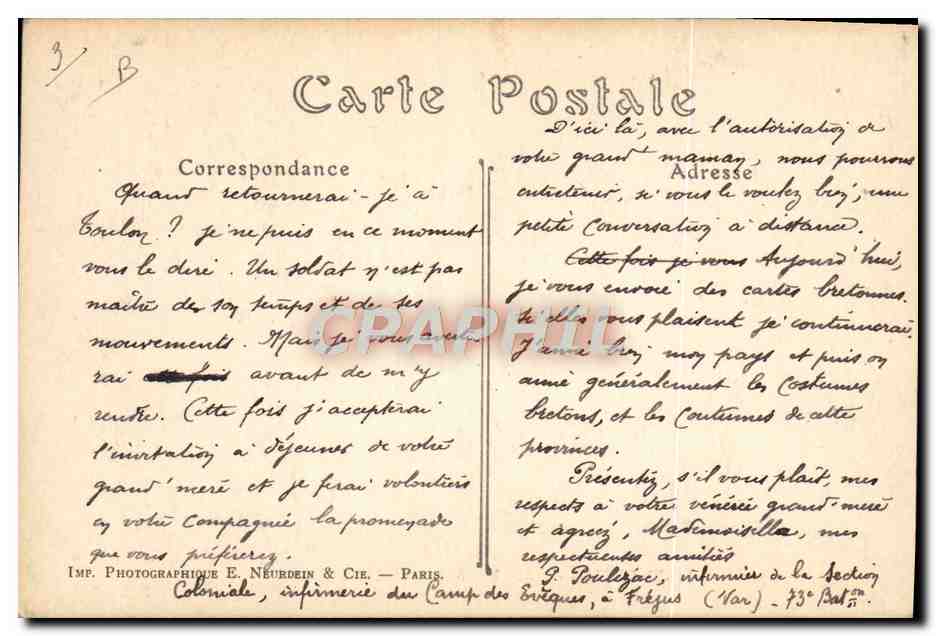 3/ B
Carte Postale
Correspondance
Quand retournerai-je à
Toulon ? je ne puis en ce moment
vous le dire. Un soldat n'est pas
maître de son temps et de ses
mouvements. Mais je vous averti
rai avant de m'y
rendre. Cette fois j'accepterai
l'invitation à déjeuner de votre
grand'mère et je ferai volontiers
en votre compagnie la promenade
que vous préférerez.
Adresse
D'ici là, avec l'autorisation de
votre grand maman, nous pourrons
entretenir, si vous le voulez bien, une
petite conversation à distance.
Cette fois je vous Aujourd'hui,
je vous envoie des cartes bretonnes.
Si elles vous plaisent je continuerai.
J'aime bien mon pays et puis on
aime généralement les costumes
bretons, et les coutumes de cette
provinces.
Présentez, s'il vous plaît, mes
respects à votre vénérée grand-mère
et agréez, Mademoiselle, mes
respectueuses amitiés
Imp. Photographique E. Neurdein & Cie. — Paris.
P. Poulezac, infirmier de la Section
Coloniale, infirmerie du Camp des Evêques, à Fréjus (Var) - 73e Baton
CPAPHIL